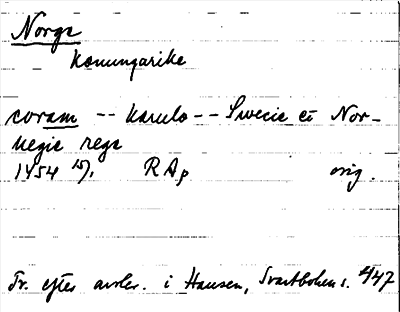 Norge
Konungarike
coram -- Karulo -- Swecie et Nor-
negie rege
1454 15/1 RAp orig.
Tr. efter avskr. i Hausen, Svartboken s. 447